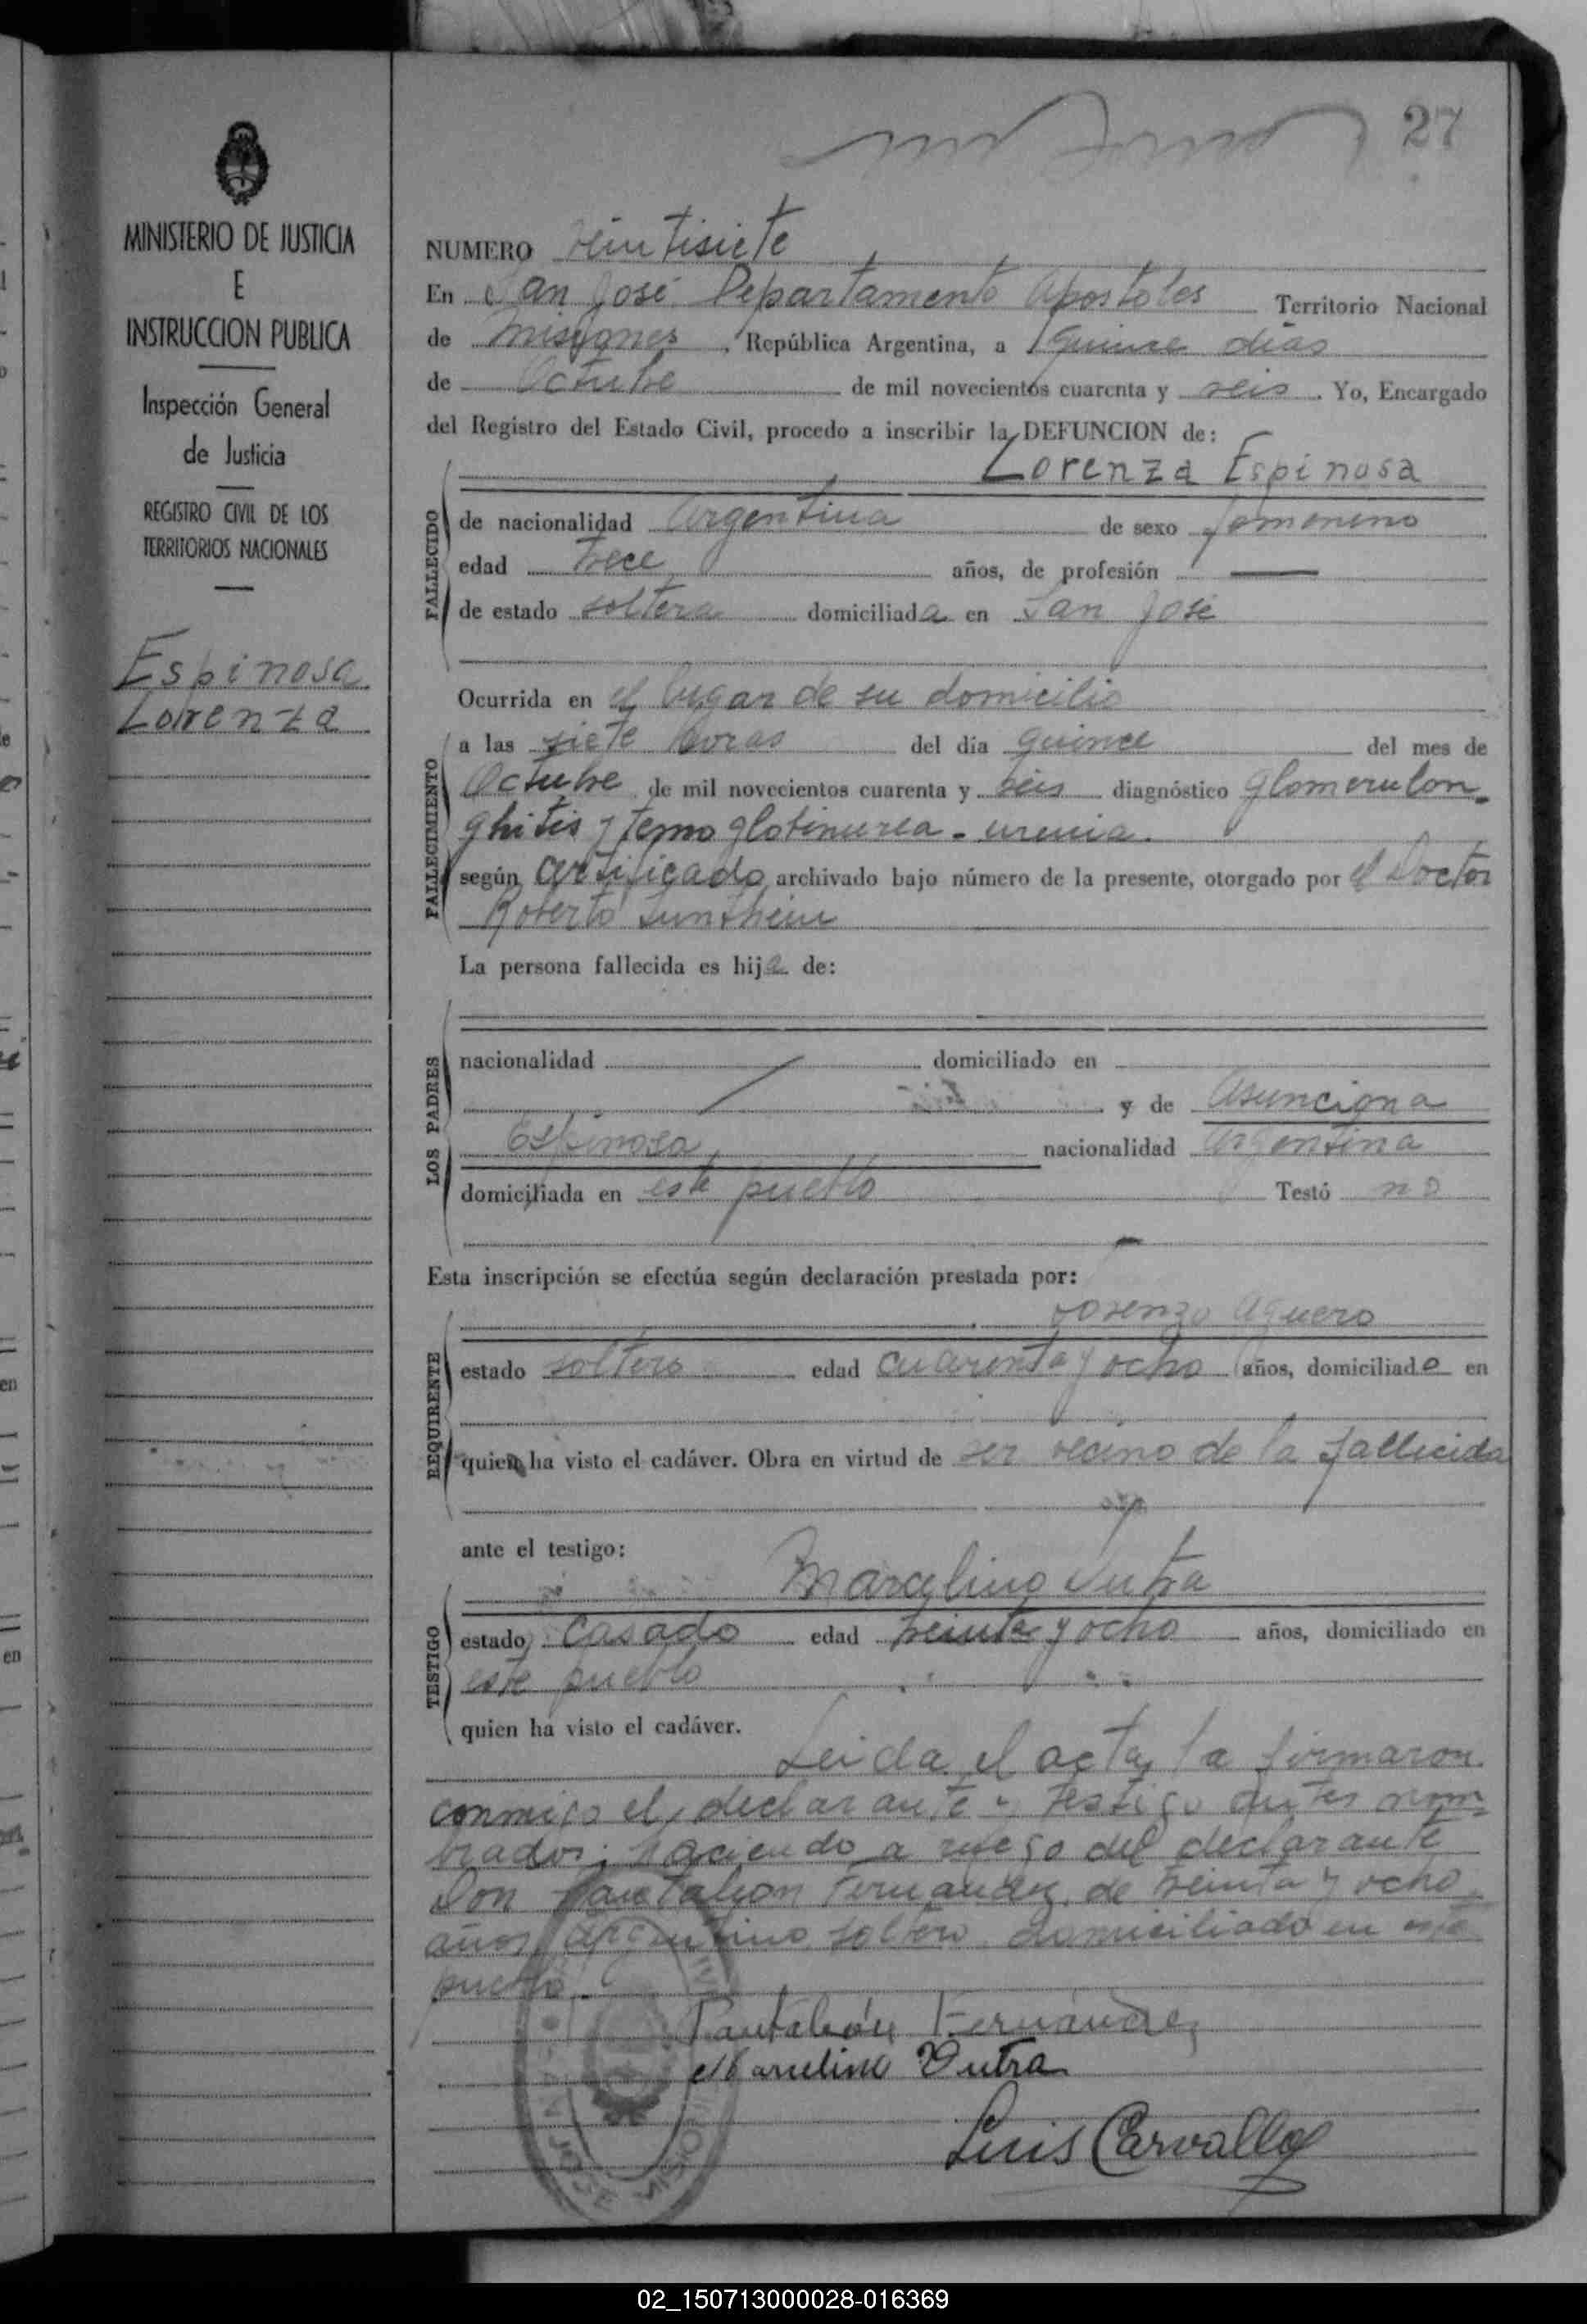 27
MINISTERIO DE JUSTICIA
E
INSTRUCCION PUBLICA
Inspección General
de Justicia
REGISTRO CIVIL DE LOS
TERRITORIOS NACIONALES
Espinosa
Lorenza
NUMERO veintisiete
En San José Departamento Apostoles Territorio Nacional
de Misiones, República Argentina, a quince dias
de Octubre de mil novecientos cuarenta y seis. Yo, Encargado
del Registro del Estado Civil, procedo a inscribir la DEFUNCION de:
Lorenza Espinosa
FALLECIDO
de nacionalidad Argentina de sexo femenino
edad trece años, de profesión —
de estado soltera domiciliada en San José
Ocurrida en el lugar de su domicilio
FALLECIMIENTO
a las siete horas del día quince del mes de
Octubre de mil novecientos cuarenta y seis diagnóstico glomerulon-
ghitis y temoglobinurea - uremia.
según certificado archivado bajo número de la presente, otorgado por el Doctor
Roberto
La persona fallecida es hija de:
LOS PADRES
nacionalidad domiciliado en
y de Asunciona
Espinosa nacionalidad Argentina
domiciliada en este pueblo Testó no
Esta inscripción se efectúa según declaración prestada por:
Lorenzo Aguero
REQUIRENTE
estado soltero edad cuarenta y ocho años, domiciliado en
quien ha visto el cadáver. Obra en virtud de ser vecino de la fallecida
ante el testigo:
Marcelino Dutra
TESTIGO
estado casado edad treinta y ocho años, domiciliado en
este pueblo
quien ha visto el cadáver.
Leida el acta, la firmaron
conmigo el declarante y testigo antes nom-
brados; haciendo a ruego del declarante
Don Pantaleon Fernandez de treinta y ocho
años, argentino, soltero, domiciliado en este
pueblo.-
Pantaleón Fernández
Marcelino Dutra
Luis Carvallo
SAN JOSE
02_150713000028-016369